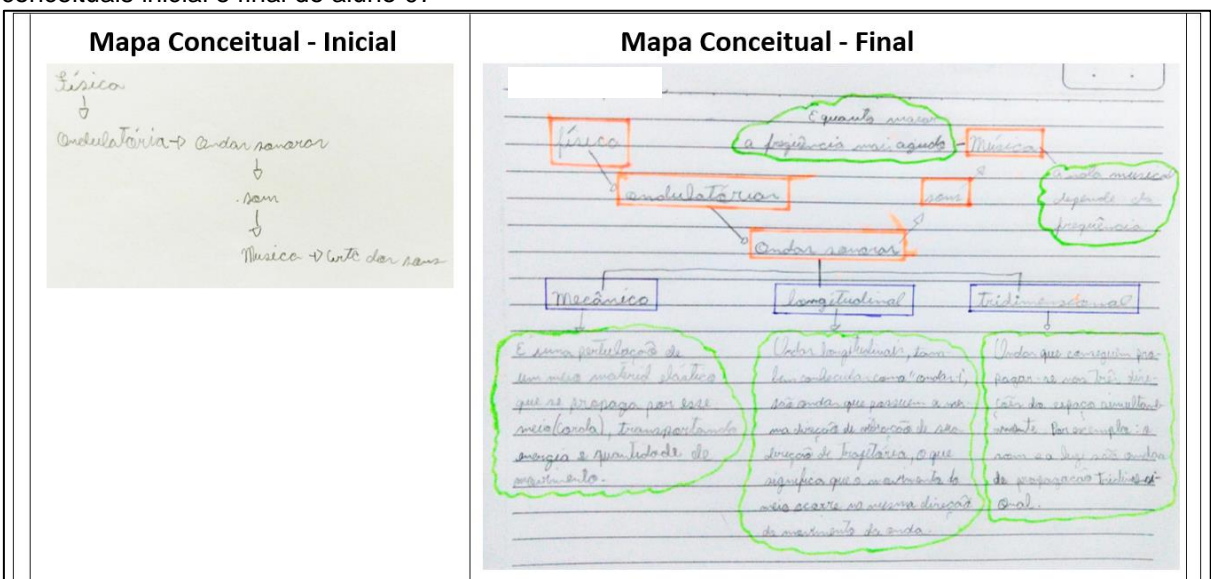 conceituais inicial e final do aluno 6.
Mapa Conceitual - Inicial
Mapa Conceitual - Final
Física
Ondulatória → Ondas sonoras
som
Musica → Arte dos sons
E quanto maior
a freqüência mais agudo
Música
física
a nota musical
depende da
frequência
ondulatórias
som
Ondas sonoras
Mecânico
longitudinal
Tridimensional
É uma pertubação de
um meio material elástico
que se propaga por esse
meio (corda), transportando
energia e quantidade de
movimento.
Ondas longitudinais, tam-
bem conhecidas como "ondas
são ondas que possuem a mes-
ma direção de vibração de sua
direção de trajetória, o que
significa que o movimento do
meio ocorre na mesma direção
do movimento da onda.
Ondas que conseguem pro-
pagar-se nas três dire-
ções do espaço simultane-
amente. Por exemplo: o
som e a luz são ondas
de propagação tridimensi-
onal.